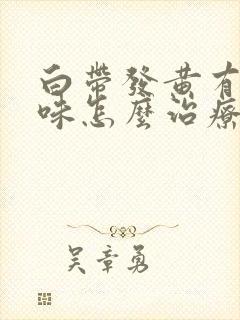 白帶發黃有
味怎麼治療
吳章勇